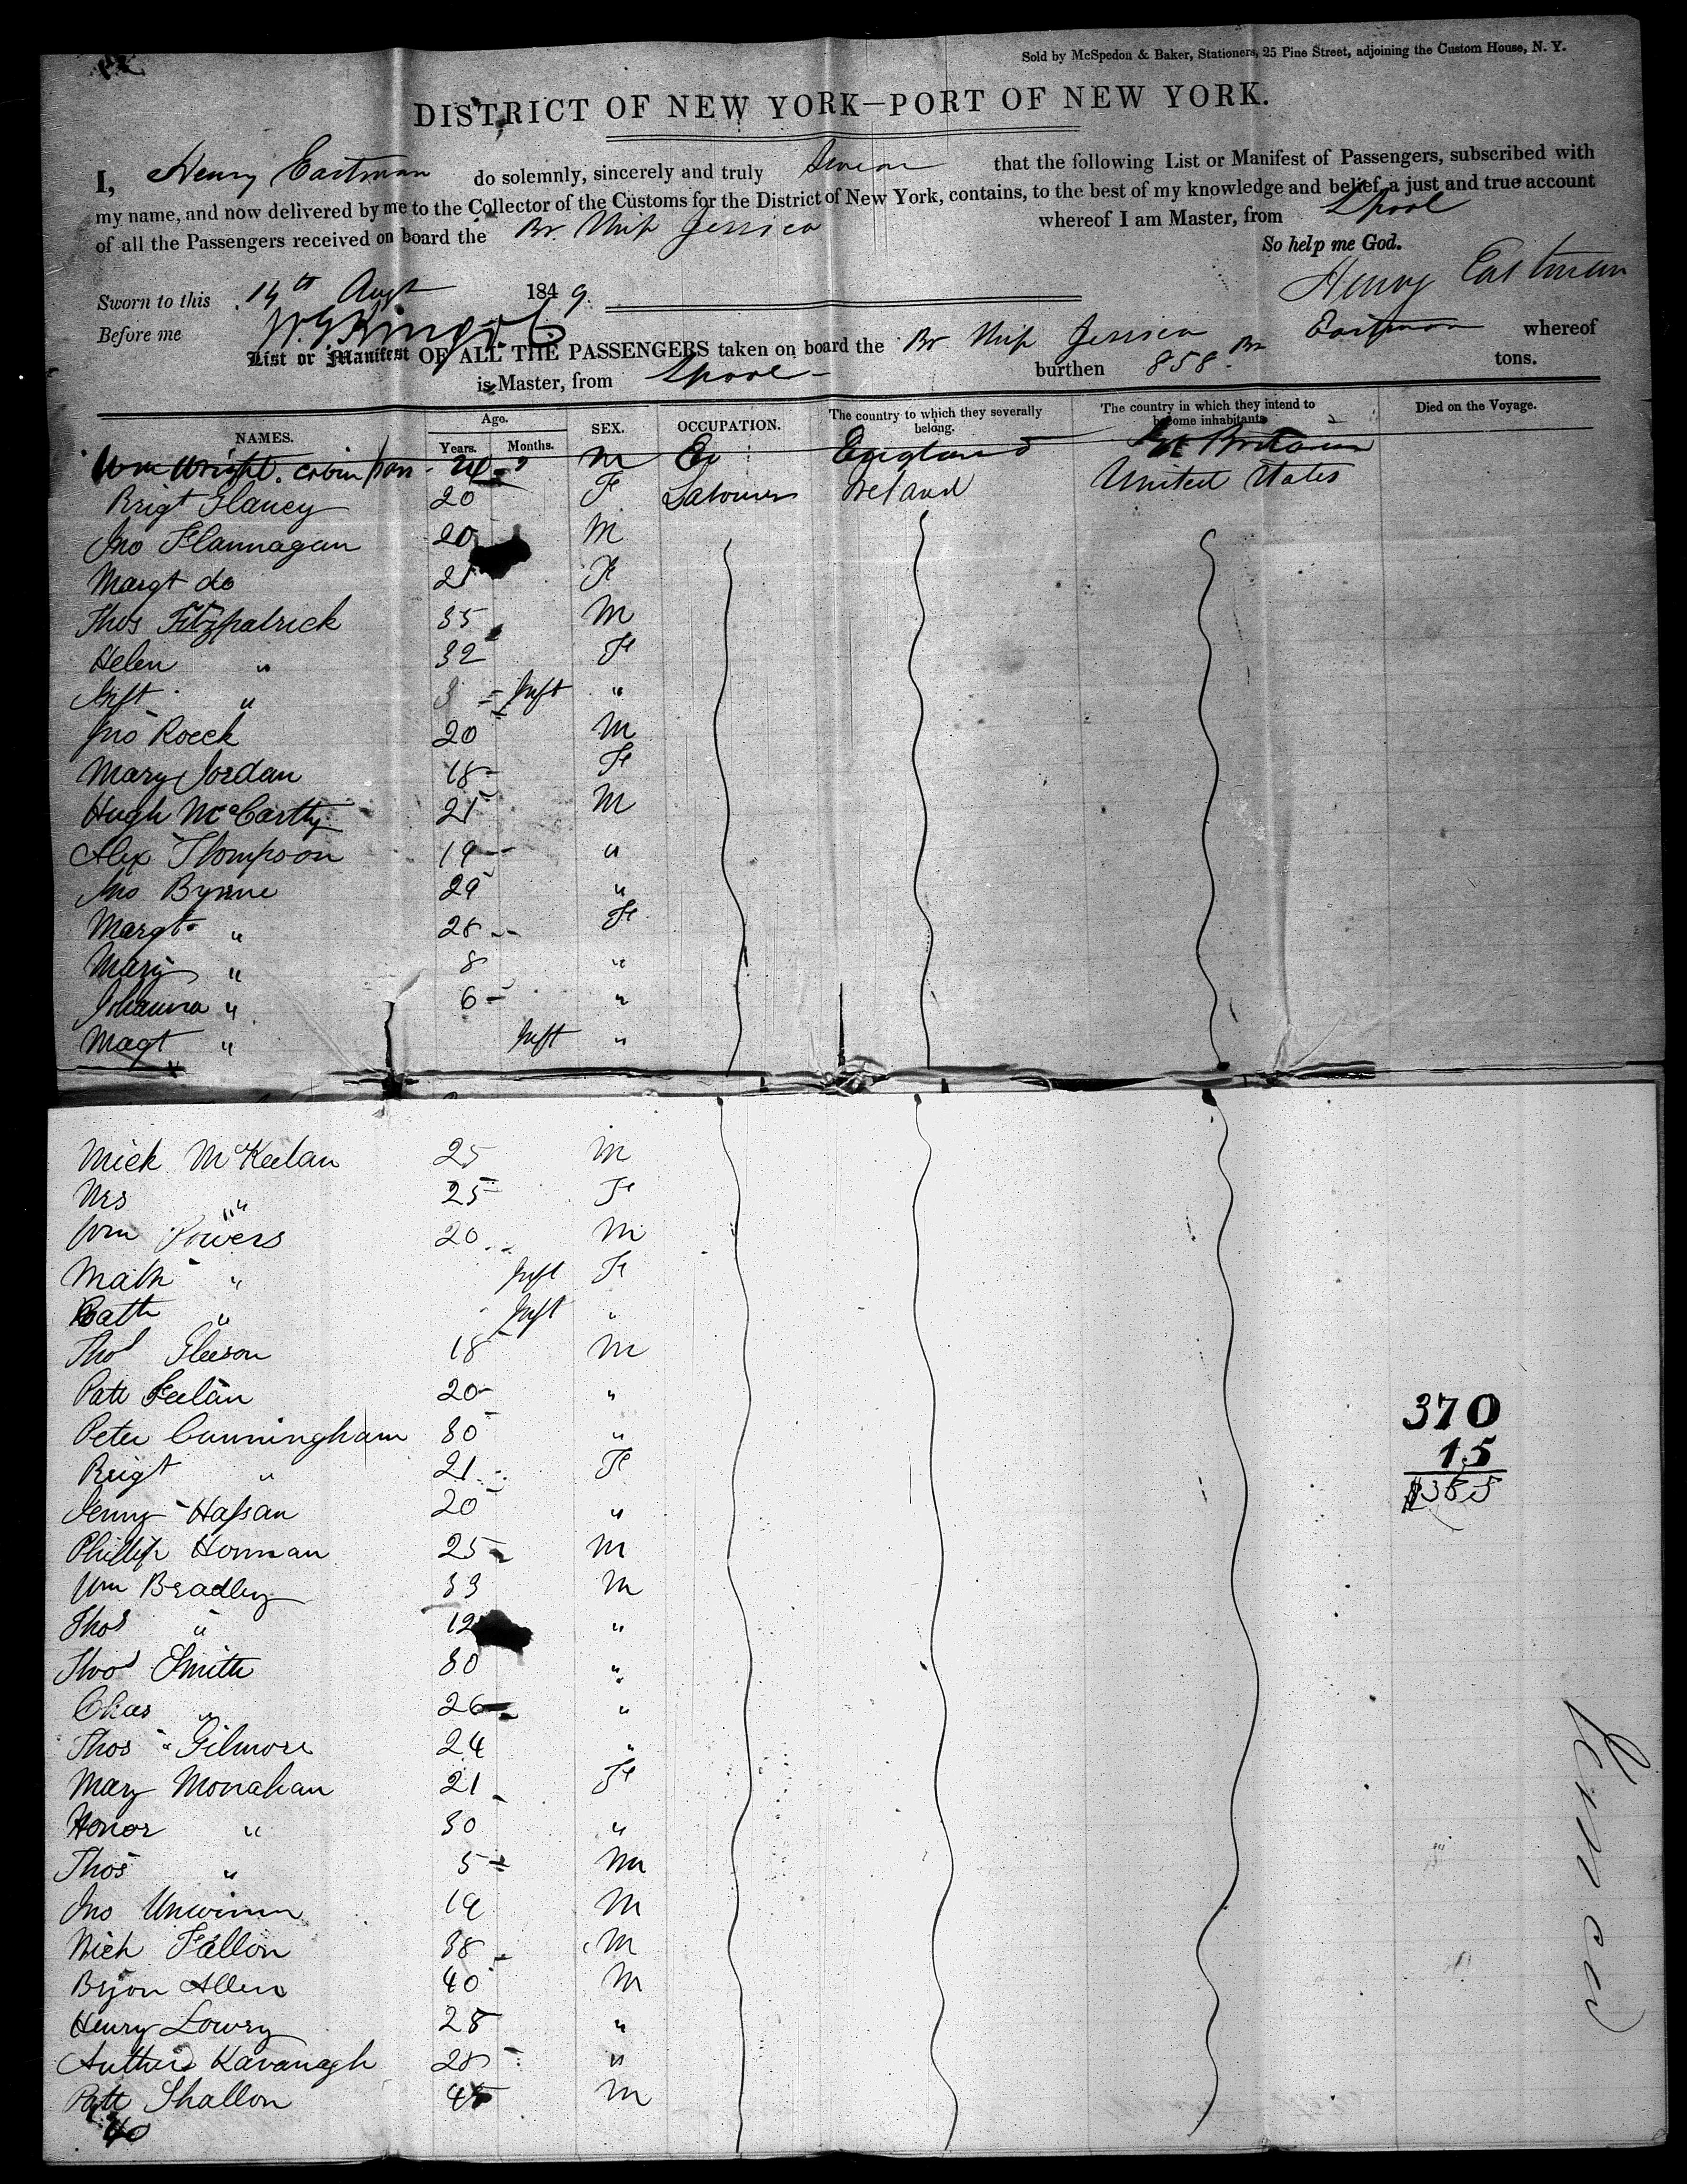 Sold by McSpedon & Baker, Stationers, 25 Pine Street, adjoining the Custom House, N. Y.
DISTRICT OF NEW YORK—PORT OF NEW YORK.
I, Henry Eastman do solemnly, sincerely and truly swear that the following List or Manifest of Passengers, subscribed with
my name, and now delivered by me to the Collector of the Customs for the District of New York, contains, to the best of my knowledge and belief, a just and true account
of all the Passengers received on board the Br. Ship Jessica whereof I am Master, from Lpool
So help me God.
Sworn to this 14th Augt 1849. Henry Eastman
Before me
List or Manifest OF ALL THE PASSENGERS taken on board the Br Ship Jessica Eastman whereof
is Master, from Lpool burthen 858 tons.
NAMES. Age. Years. Months. SEX. OCCUPATION. The country to which they severally belong. The country in which they intend to become inhabitants Died on the Voyage.
Wm Wright. cabin pass 24 M England Gt Britain
Brigt Glancy 20 F Labourers Ireland United States
Jno Flannagan 20 M
Margt do 21 F
Thos Fitzpatrick 35 M
Helen " 32 F
" Inft "
Jno Roeck 20 M
Mary Jordan 18 F
Hugh McCarthy 21 M
Alex Thompson 19 "
Jno Byrne 29 "
Margt " 28 F
Mary " 8 "
Johanna " 6 "
Magt " Inft "
Mick McKeelan 25 M
Mrs " 25 F
Wm Powers 20 M
Math " Inft F
Cath " Inft "
Thos Gleeson 18 M
Patt Feelan 20 "
Peter Cunningham 30 "
Brigt " 21 F
Jenny Hassan 20 "
Phillip Honnan 25 M
Wm Bradley 33 M
Thos " 12 "
Thos Smith 30 "
Chas " 26 "
Thos Gilmore 24 "
Mary Monahan 21 F
Honor " 30 "
Thos " 5 M
Jno Unwinn 19 M
Mich Fallon 38 M
Bryon Allen 40 M
Henry Lowry 28 "
Arthur Kavanagh 28 "
Patt Shallon 45 M
40
370
15
$385